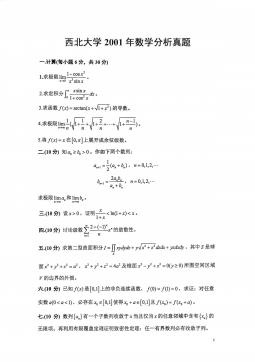 西北大学 2001 年数学分析真题
一.计算(每小题 6 分，共 30 分)
1.求极限 lim_{x→0} (1−cos x²)/(x² sin x) 。
2.求定积分 ∫_0^π (x sin x)/(1+cos² x) dx 。
3.求函数 f(x)=arctan(x+√(1+x²)) 的导数。
4.求极限 lim_{n→∞} (1/n)(√(1+1/n)+√(1+2/n)+⋯+√(1+(n−1)/n)) 。
5.将 f(x)=x 在 [0,π] 上展开成余弦级数。
二.(10 分) 知 a₀ ≥ b₀ > 0，作如下两个数列：
a_{n+1} = (1/2)(a_n+b_n)，n=0,1,2,⋯
b_{n+1} = 2a_n b_n/(a_n+b_n)，n=0,1,2,⋯
求极限 lim_{n→∞} a_n 和 lim_{n→∞} b_n 。
三.(10 分) 设 x>0，证明 x/(1+x) < ln(1+x) < x 。
四.(10 分) 讨论函数 的敛散性。
五.(10 分) 求第二型曲面积分 其中 Σ 是球
面 及锥面 所围空间区域
的边界的外侧。
六.(10 分) 已知 f(x) 是 [0,1] 上的非负连续函数，f(0)=f(1)=0，求证：对任意
实数 a(0<a<1)，必存在 x₀∈[0,1] 使得 x₀+a∈[0,1] 且 f(x₀)=f(x₀+a) 。
七.(10 分) 数列 {x_n} 有一个子数列收敛于 a 当且仅当 a 的任意邻域中含有 {x_n} 的
无限项。再利用有限覆盖定理证明致密性定理：任一有界数列必有收敛子列。
1